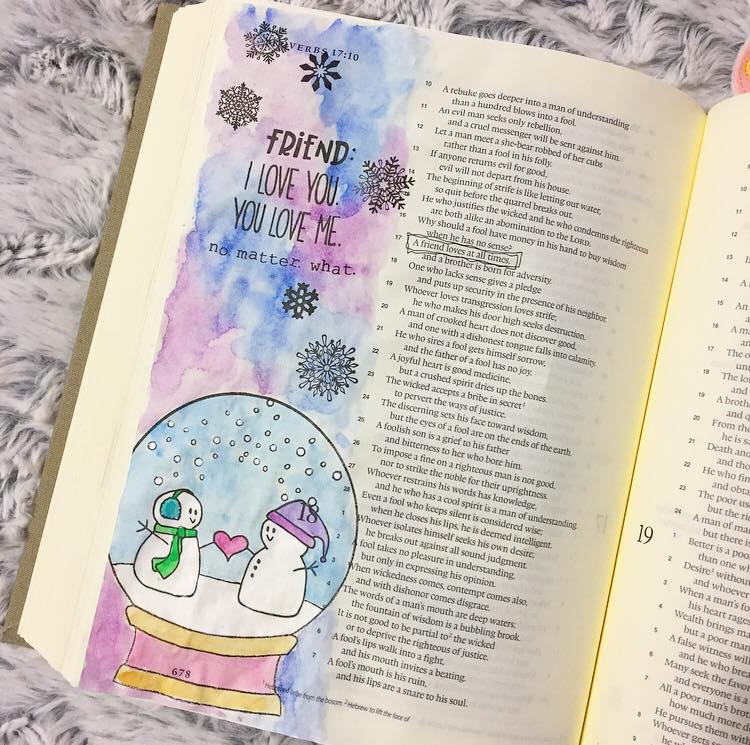 VERBS 17:10
FRIEND:
I LOVE YOU.
YOU LOVE ME.
no matter what.
10 A rebuke goes deeper into a man of understanding
than a hundred blows into a fool.
11 An evil man seeks only rebellion,
and a cruel messenger will be sent against him.
12 Let a man meet a she-bear robbed of her cubs
rather than a fool in his folly.
13 If anyone returns evil for good,
evil will not depart from his house.
14 The beginning of strife is like letting out water,
so quit before the quarrel breaks out.
He who justifies the wicked and he who condemns the righteous
are both alike an abomination to the LORD.
16 Why should a fool have money in his hand to buy wisdom
when he has no sense?
17 A friend loves at all times,
and a brother is born for adversity.
18 One who lacks sense gives a pledge
and puts up security in the presence of his neighbor.
19 Whoever loves transgression loves strife;
he who makes his door high seeks destruction.
20 A man of crooked heart does not discover good,
and one with a dishonest tongue falls into calamity.
21 He who sires a fool gets himself sorrow,
and the father of a fool has no joy.
22 A joyful heart is good medicine,
but a crushed spirit dries up the bones.
23 The wicked accepts a bribe in secret¹
to pervert the ways of justice.
24 The discerning sets his face toward wisdom,
but the eyes of a fool are on the ends of the earth.
25 A foolish son is a grief to his father
and bitterness to her who bore him.
26 To impose a fine on a righteous man is not good,
nor to strike the noble for their uprightness.
27 Whoever restrains his words has knowledge,
and he who has a cool spirit is a man of understanding.
28 Even a fool who keeps silent is considered wise;
when he closes his lips, he is deemed intelligent.
18
1 Whoever isolates himself seeks his own desire;
he breaks out against all sound judgment.
2 A fool takes no pleasure in understanding,
but only in expressing his opinion.
3 When wickedness comes, contempt comes also,
and with dishonor comes disgrace.
4 The words of a man's mouth are deep waters;
the fountain of wisdom is a bubbling brook.
5 It is not good to be partial to² the wicked
or to deprive the righteous of justice.
6 A fool's lips walk into a fight,
and his mouth invites a beating.
7 A fool's mouth is his ruin,
and his lips are a snare to his soul.
bribe from the bosom ² Hebrew to lift the face of
678
19